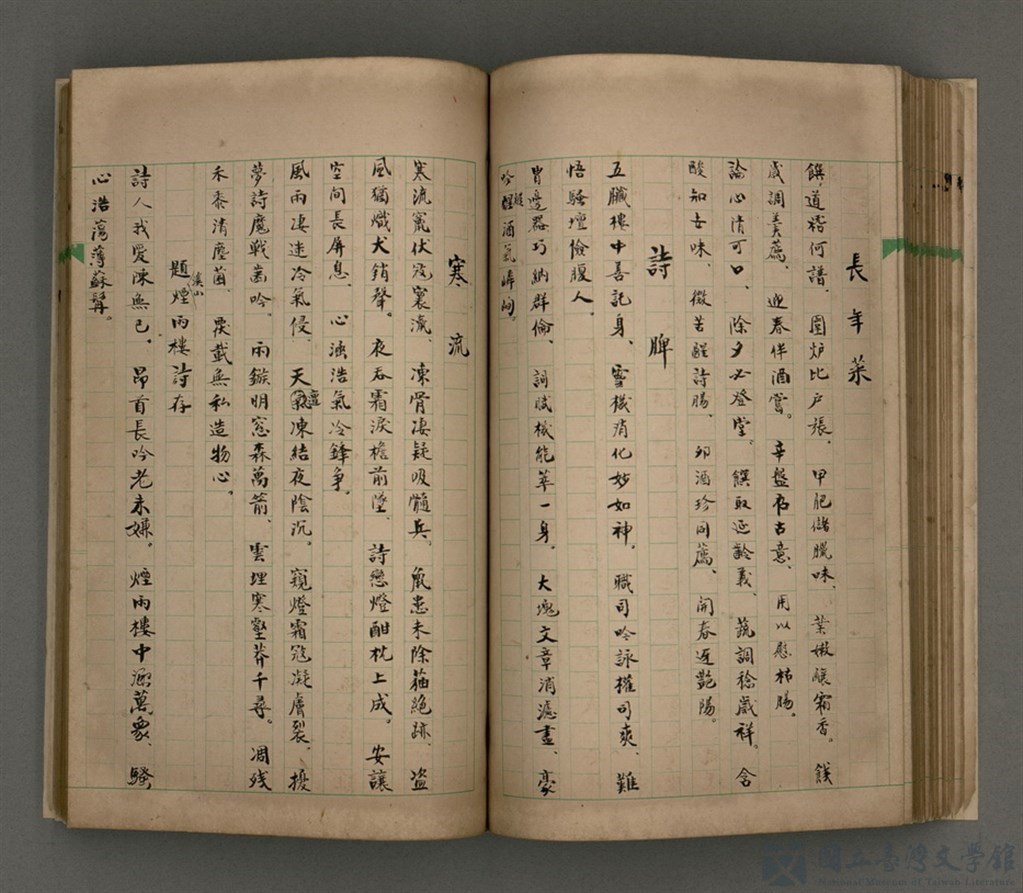 長年菜
饌道稽何譜、圍炉比户張、甲肥儲臘味、葉嫩釀霜香。餞
歲調羹薦、迎春伴酒嘗。辛盤存古意、用以慰枯腸。
論心清可口、除夕必登堂。饌取延齡義、蔬調稔歲祥。含
酸知世味、微苦醒詩腸、卯酒珍同薦、開春迓艷陽。
詩脾
五臟樓中善記身、靈機消化妙如神。職司吟詠權司爽、難
悟騷壇儉腹人。
胃邊器巧納群倫、詞賦機能萃一身。大塊文章消濾盡、豪
吟酒氣
寒流
寒流竄伏寇寰瀛、凍骨淒疑吸髓兵。鼠患未除貓絕跡、盗
風猶熾犬銷聲。夜吞霜淚檐前墜、詩戀燈酣枕上成。安讓
空间長屏息、心涵浩氣冷鋒争。
風雨凄迷冷氣侵、天氣凍結夜陰沉。窺燈霜寇凝膚裂、擾
夢詩魔戰齒吟。雨鏃明窓森萬箭、雲埋寒壑莽千尋。凋残
禾黍清塵菌、覆載無私造物心。
題溪山煙雨樓詩存
詩人我愛陳無已、昂首長吟老未嫌。煙雨樓中涵萬象、騷
心浩蕩薄蘇髯。
國立臺灣文學館
National Museum of Taiwan Literature